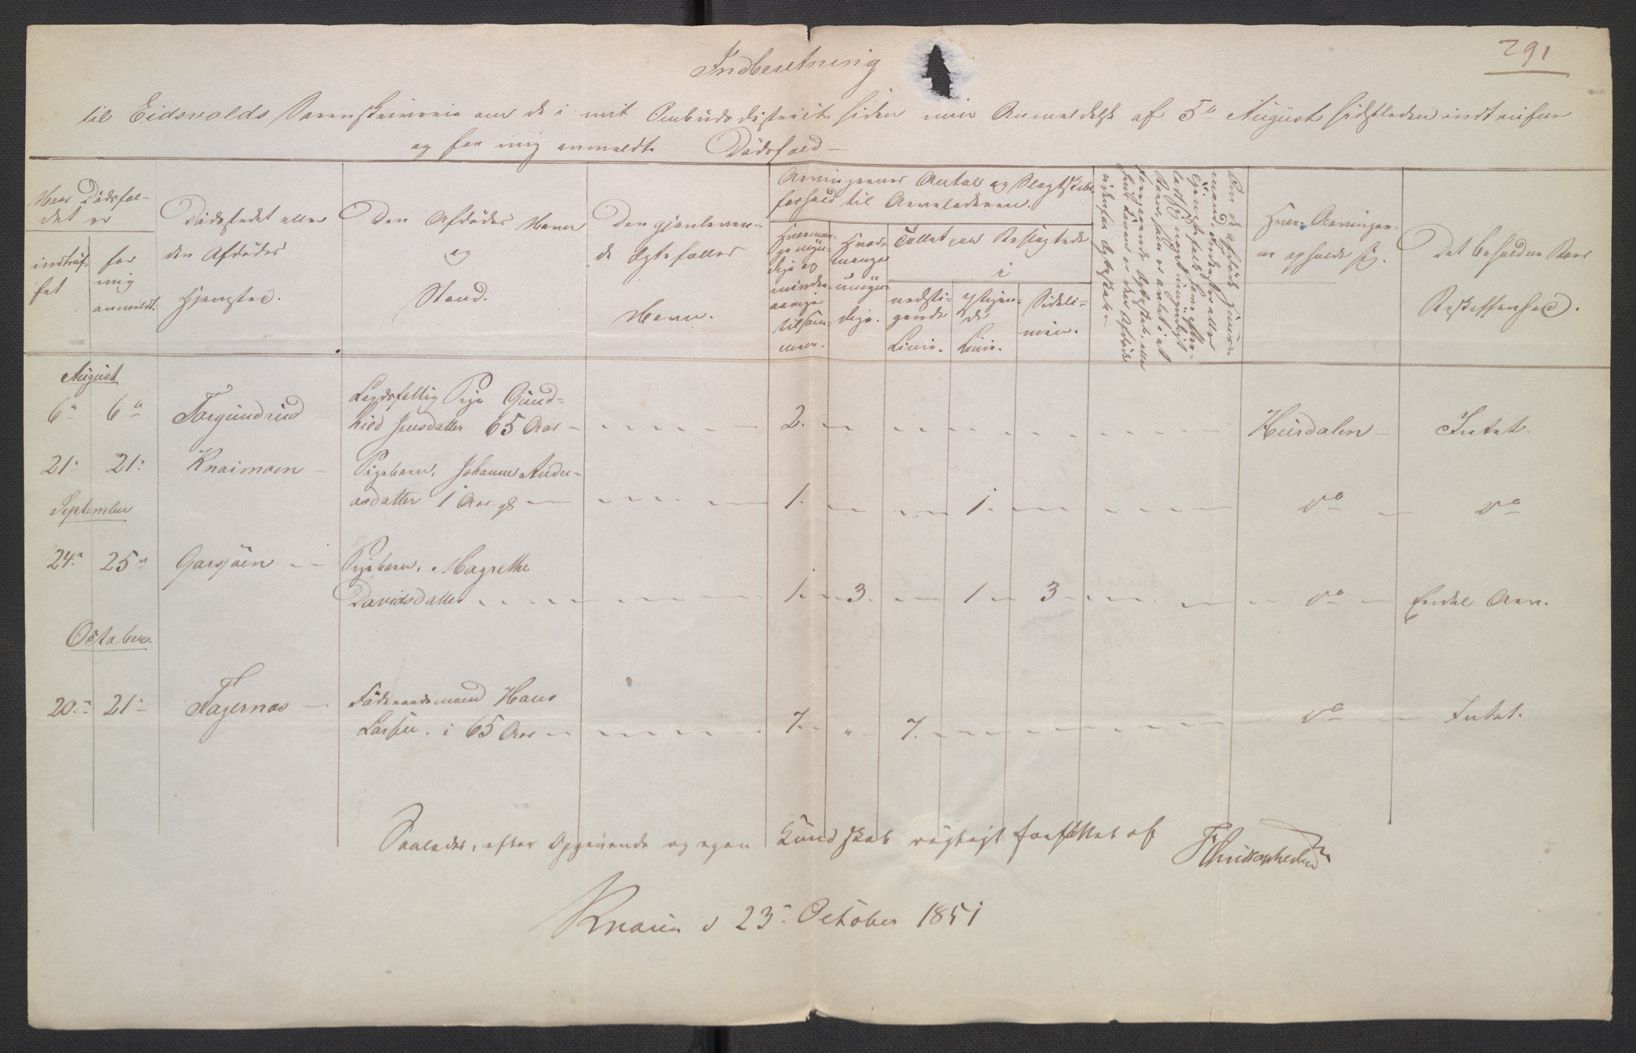 291
Indberetning
til Eidsvolds Sorenskriverie om de i mit Ombuds district siden min Anmeldelse af 5te August sidstleden indtrufne
og for mig anmeldte Dödsfald
Naar Dödsfal-
det er
indtruf-
fet
for
mig
anmeldt.
Dödsstedet eller
den Afdödes
Hjemsted.
Den Afdödes Navn
og
Stand.
Den gjenleven-
de Egtefælles
Navn.
Arvingernes Antal og Slægtskabs
forhold til Arveladeren.
Hvormange
myndige og
mindre-
aarige
tilsam-
men.
Hvor-
mange
umyn-
dige.
Tallet paa Beslægtede
i
nedsti-
gende
Linie.
opstigen-
de
Linie.
Sideli-
nien.
Hvor Arvingen-
ne opholde sig.
Det beholdne Boes
Beskaffenhed.
August
6te 6te Torgundrud Lægdsfattig Pige Gund-
hild Jensdatter 65 Aar 2. Hurdalen Intet.
21: 21: Knaimoen Pigebarn. Johanne Ande-
asdatter 1 Aar gl 1. 1. do do
September
24: 25: Garsjöen Pigebarn. Magrethe
Davidsdatter 1. 3. 1 3 do Endel Arv.
October.
20: 21: Fagernæs Föderaadsmand Hans
Larsen. i 65 Aar 7. " 7. do Intet.
Saaledes, efter Opgivende og egen Kundskab rigtigt forfattet af FChristophersen
Knaim d 23: October 1851